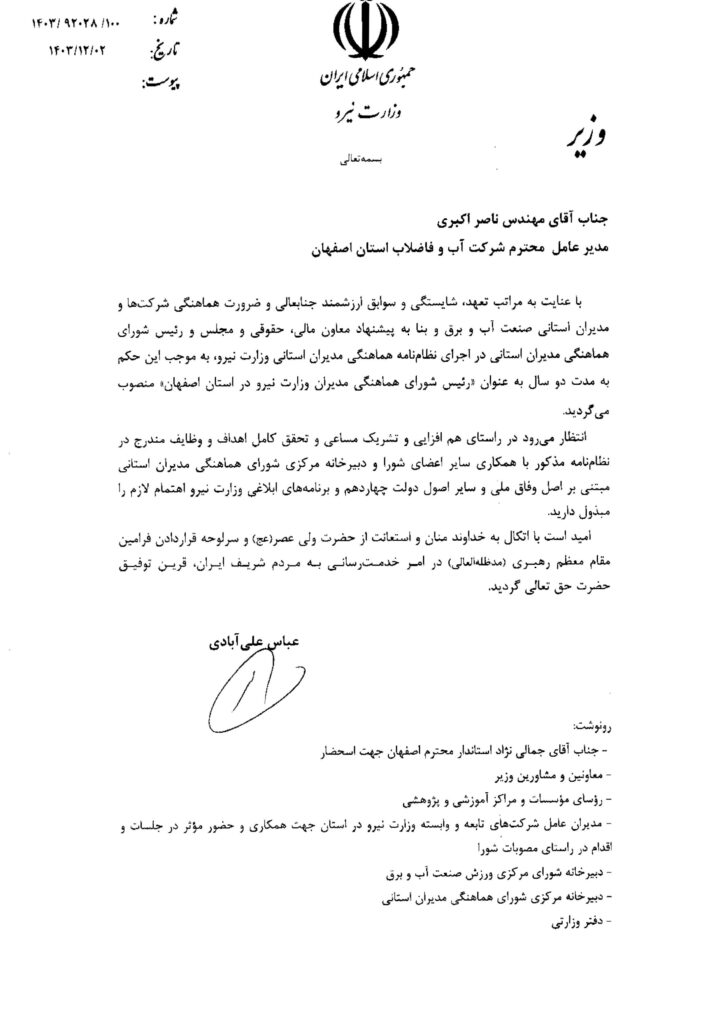 شماره: ۱۴۰۳/ ۹۲۰۲۸ /۱۰۰
تاریخ: ۱۴۰۳/۱۲/۰۲
پیوست:
جمهوری اسلامی ایران
وزارت نیرو
وزیر
بسمه‌تعالی
جناب آقای مهندس ناصر اکبری
مدیر عامل محترم شرکت آب و فاضلاب استان اصفهان
با عنایت به مراتب تعهد، شایستگی و سوابق ارزشمند جنابعالی و ضرورت هماهنگی شرکت‌ها و
مدیران استانی صنعت آب و برق و بنا به پیشنهاد معاون مالی، حقوقی و مجلس و رئیس شورای
هماهنگی مدیران استانی در اجرای نظام‌نامه هماهنگی مدیران استانی وزارت نیرو، به موجب این حکم
به مدت دو سال به عنوان «رئیس شورای هماهنگی مدیران وزارت نیرو در استان اصفهان» منصوب
می‌گردید.
انتظار می‌رود در راستای هم افزایی و تشریک مساعی و تحقق کامل اهداف و وظایف مندرج در
نظام‌نامه مذکور با همکاری سایر اعضای شورا و دبیرخانه مرکزی شورای هماهنگی مدیران استانی
مبتنی بر اصل وفاق ملی و سایر اصول دولت چهاردهم و برنامه‌های ابلاغی وزارت نیرو اهتمام لازم را
مبذول دارید.
امید است با اتکال به خداوند منان و استعانت از حضرت ولی عصر(عج) و سرلوحه قراردادن فرامین
مقام معظم رهبری (مدظله‌العالی) در امر خدمت‌رسانی به مردم شریف ایران، قرین توفیق
حضرت حق تعالی گردید.
عباس علی‌آبادی
رونوشت:
- جناب آقای جمالی نژاد استاندار محترم اصفهان جهت اسحضار
- معاونین و مشاورین وزیر
- رؤسای مؤسسات و مراکز آموزشی و پژوهشی
- مدیران عامل شرکت‌های تابعه و وابسته وزارت نیرو در استان جهت همکاری و حضور مؤثر در جلسات و
اقدام در راستای مصوبات شورا
- دبیرخانه شورای مرکزی ورزش صنعت آب و برق
- دبیرخانه مرکزی شورای هماهنگی مدیران استانی
- دفتر وزارتی